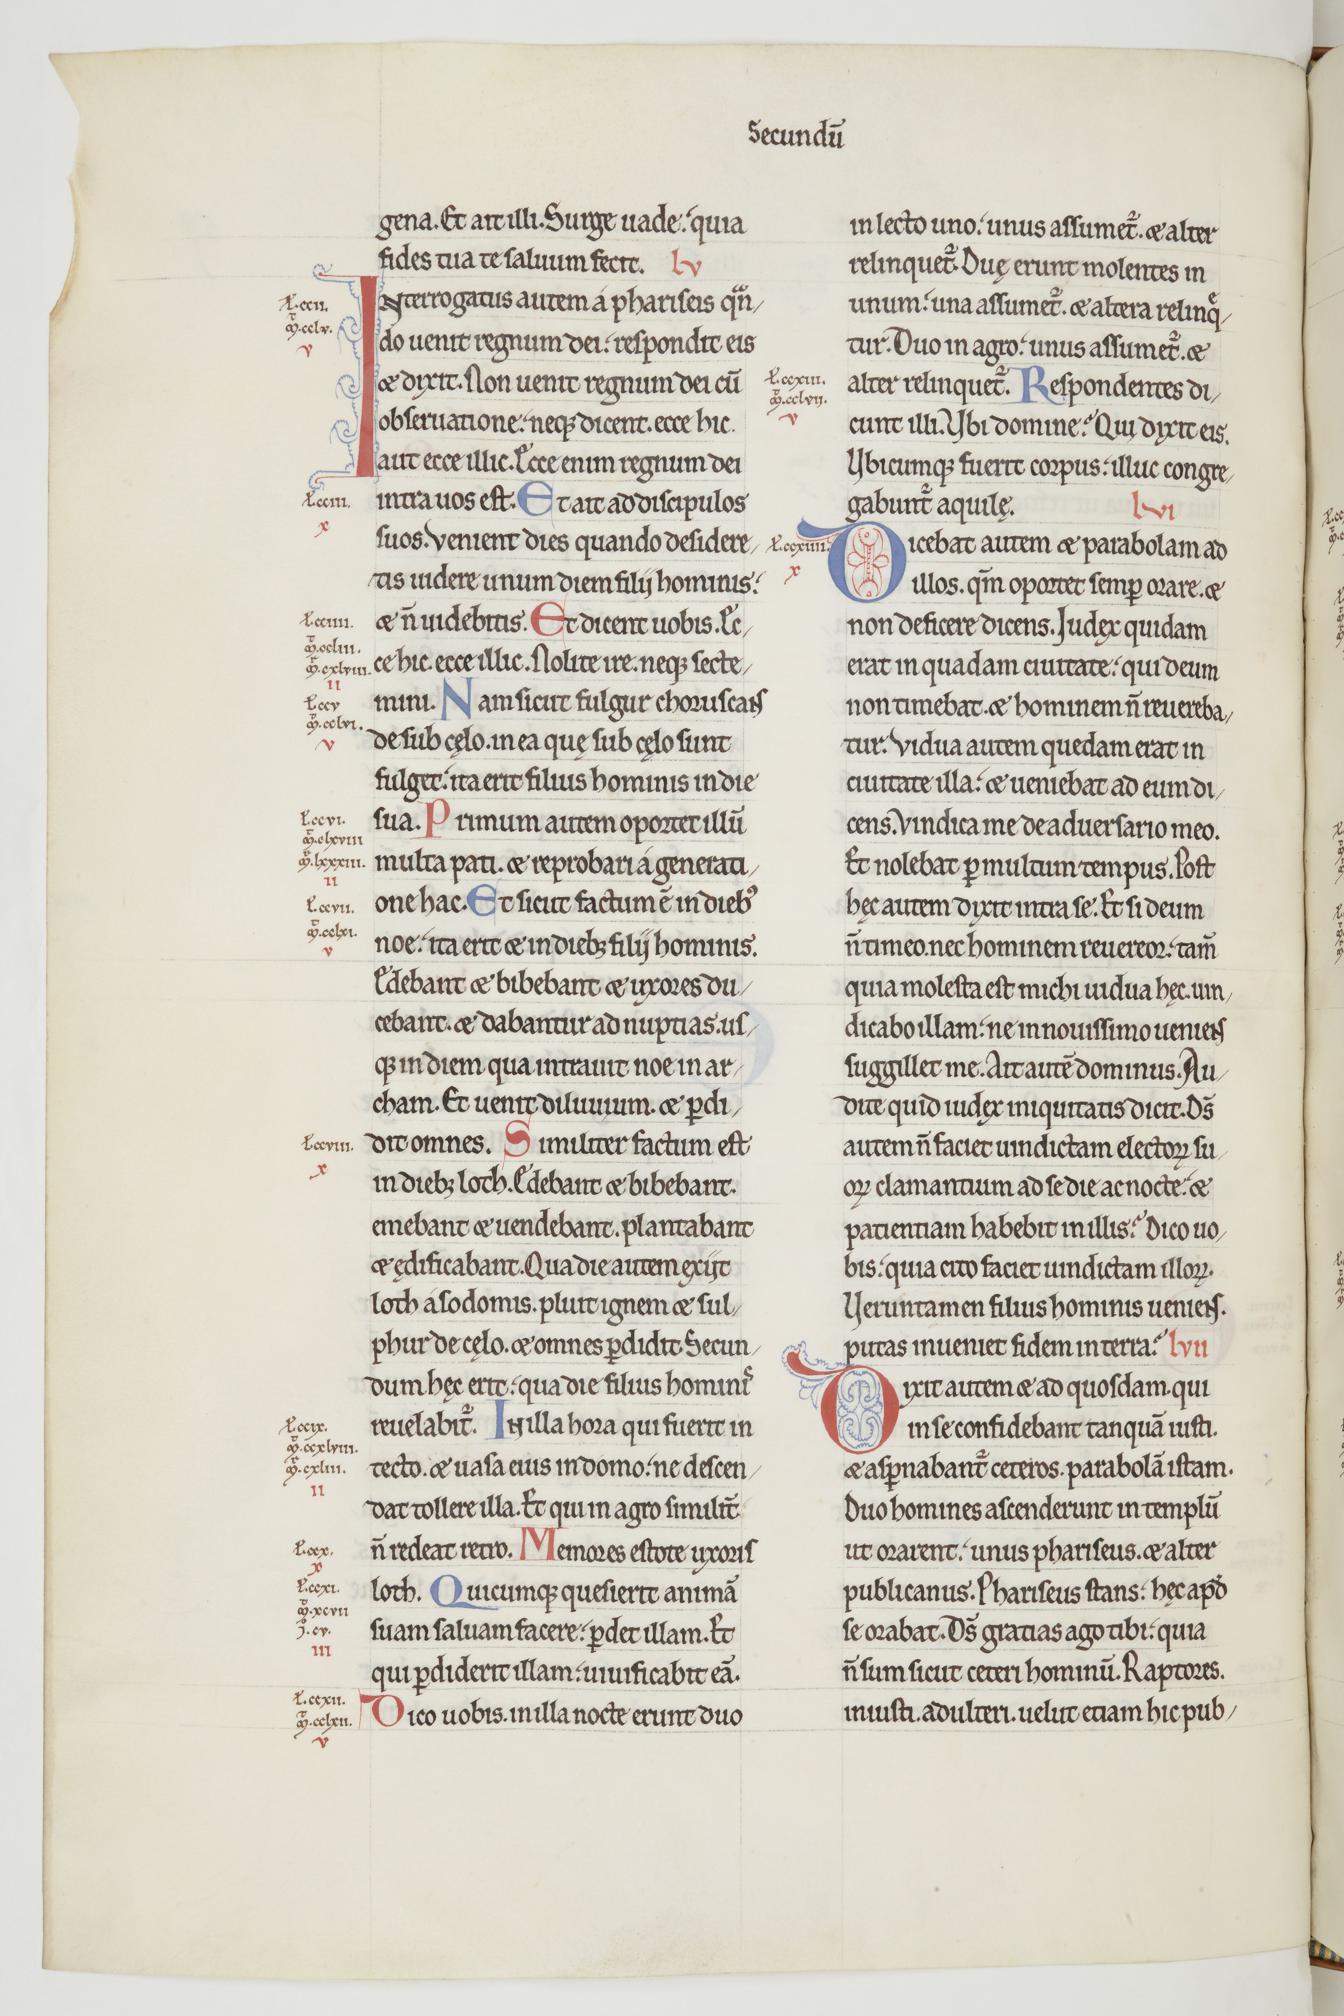 Secundū
gena. Et ait illi. Surge uade: quia
fides tua te saluum fecit. lv
Interrogatus autem á phariseis qn̄
do uenit regnum dei: respondit eis
& dixit. Non uenit regnum dei cū
obseruatione: neq; dicent. ecce hic.
aut ecce illic. Ecce enim regnum dei
intra uos est. Et ait ad discipulos
suos. Venient dies quando desidere/
tis uidere unum diem filij hominis:
& n̄ uidebitis. Et dicent uobis. Ec/
ce hic. ecce illic. Nolite ire. neq; secte/
mini. Nam sicut fulgur choruscans
de sub cęlo. in ea quę sub cęlo sunt
fulget: ita erit filius hominis in die
sua. Primum autem oportet illū
multa pati. & reprobari á generati/
one hac. Et sicut factum ē in dieb'
noe: ita erit & in dieb; filij hominis.
Edebant & bibebant & uxores du/
cebant. & dabantur ad nuptias. us/
q; in diem qua intrauit noe in ar/
cham. Et uenit diluuium. & p̱di/
dit omnes. Similiter factum est
in dieb; loth. Edebant & bibebant.
emebant & uendebant. plantabant
& ędificabant. Qua die autem exijt
loth á sodomis. pluit ignem & sul/
phur de cęlo. & omnes p̱didit. Secun/
dum hęc erit: qua die filius hominis
reuelabit᷑. In illa hora qui fuerit in
tecto. & uasa eius in domo: ne descen/
dat tollere illa. Et qui in agro similit̄
n̄ redeat retro. Memores estote uxoris
loth. Quicumq; quesierit animā
suam saluam facere: p̱det illam. Et
qui p̱diderit illam: uiuificabit eā.
Dico uobis. in illa nocte erunt duo
in lecto uno: unus assumet᷑. & alter
relinquet᷑. Duę erunt molentes in
unum: una assumet᷑. & altera relinq̄/
tur. Duo in agro: unus assumet᷑. &
alter relinquet᷑. Respondentes di/
cunt illi. Vbi domine? Qui dixit eis.
Vbicumq; fuerit corpus: illuc congre/
gabunt᷑ aquilę. lvi
Dicebat autem & parabolam ad
illos. qm̄ oportet semp̱ orare. &
non deficere dicens. Judex quidam
erat in quadam ciuitate: qui deum
non timebat. & hominem n̄ reuereba/
tur. Vidua autem quedam erat in
ciuitate illa: & ueniebat ad eum di/
cens. Vindica me de aduersario meo.
Et nolebat p̱ multum tempus. Post
hęc autem dixit intra se. Et si deum
n̄ timeo. nec hominem reuereor: tam̄
quia molesta est michi uidua hęc. uin/
dicabo illam: ne in nouissimo ueniens
suggillet me. Ait autē dominus. Au/
dite quid iudex iniquitatis dicit. Ds̄
autem n̄ faciet uindictam electoꝝ su/
oꝝ clamantium ad se die ac nocte: &
patientiam habebit in illis? Dico uo/
bis: quia cito faciet uindictam illoꝝ.
Veruntamen filius hominis ueniens.
putas inueniet fidem in terra? lvii
Dixit autem & ad quosdam. qui
in se confidebant tanquā iusti.
& asp̱nabant᷑ ceteros. parabolā istam.
Duo homines ascenderunt in templū
ut orarent: unus phariseus. & alter
publicanus. Phariseus stans: hęc apd̄
se orabat. Ds̄ gratias ago tibi: quia
n̄ sum sicut ceteri hominū. Raptores.
iniusti. adulteri. uelut etiam hic pub/
L. ccii.
M. cclv.
v
L. cciii.
x
L. cciiii.
M. ccliii.
M. cxlviii.
ii
L. ccv
M. cclvi.
v
L. ccvi.
M. clxviii
M. lxxxiii.
ii
L. ccvii.
M. cclxi.
v
L. ccviii.
x
L. ccix.
M. ccxlviii.
M. cxliii.
ii
L. ccx.
x
L. ccxi.
M. xcvii
J. cv.
iii
L. ccxii.
M. cclxii.
v
L. ccxiii.
M. cclvii.
v
L. ccxiiii.
x